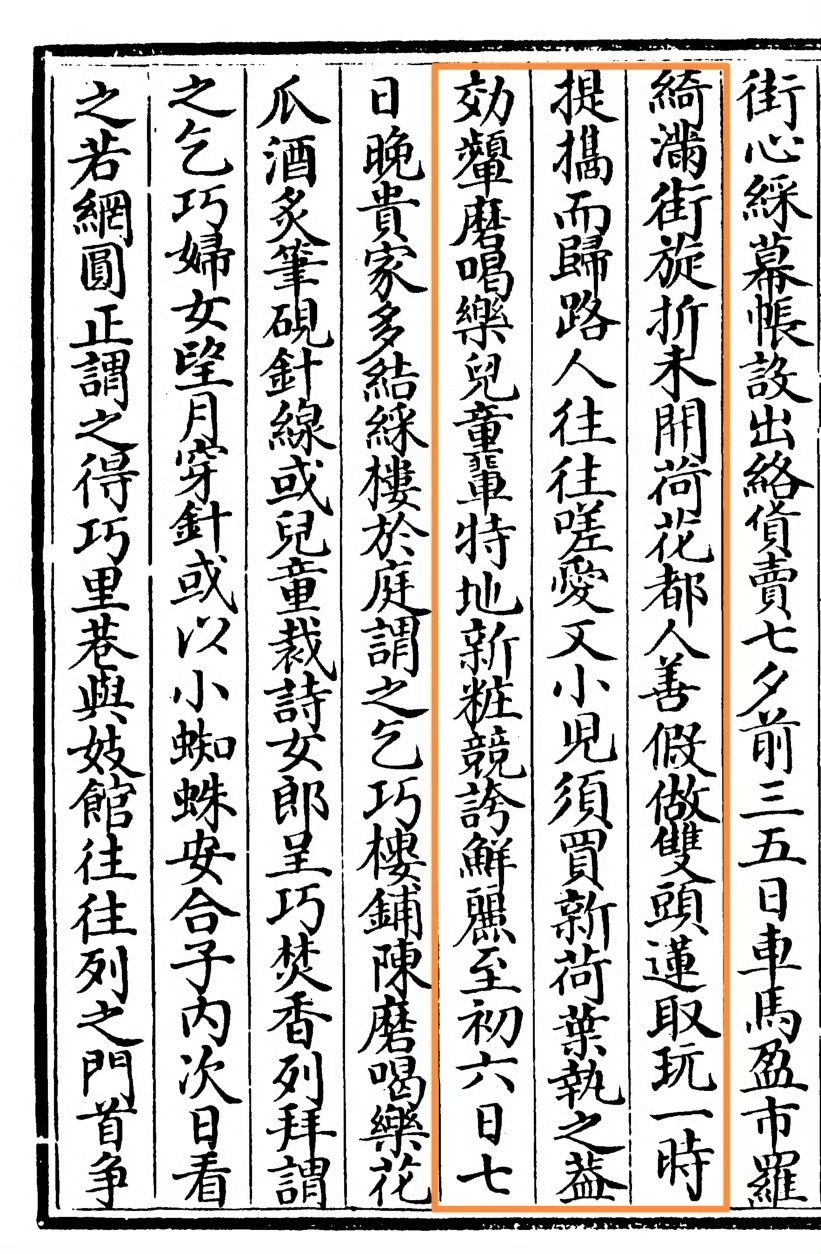 街心綵幕帳設出絡貨賣七夕前三五日車馬盈市羅
綺滿街旋折未開荷花都人善假做雙頭蓮取玩一時
提擕而歸路人往往嗟愛又小兒須買新荷葉執之葢
効顰磨喝樂兒童輩特地新粧競誇鮮麗至初六日七
日晚貴家多結綵樓於庭謂之乞巧樓鋪陳磨喝樂花
瓜酒炙筆硯針線或兒童裁詩女郎呈巧焚香列拜謂
之乞巧婦女望月穿針或以小蜘蛛安合子內次日看
之若網圓正謂之得巧里巷與妓館往往列之門首争